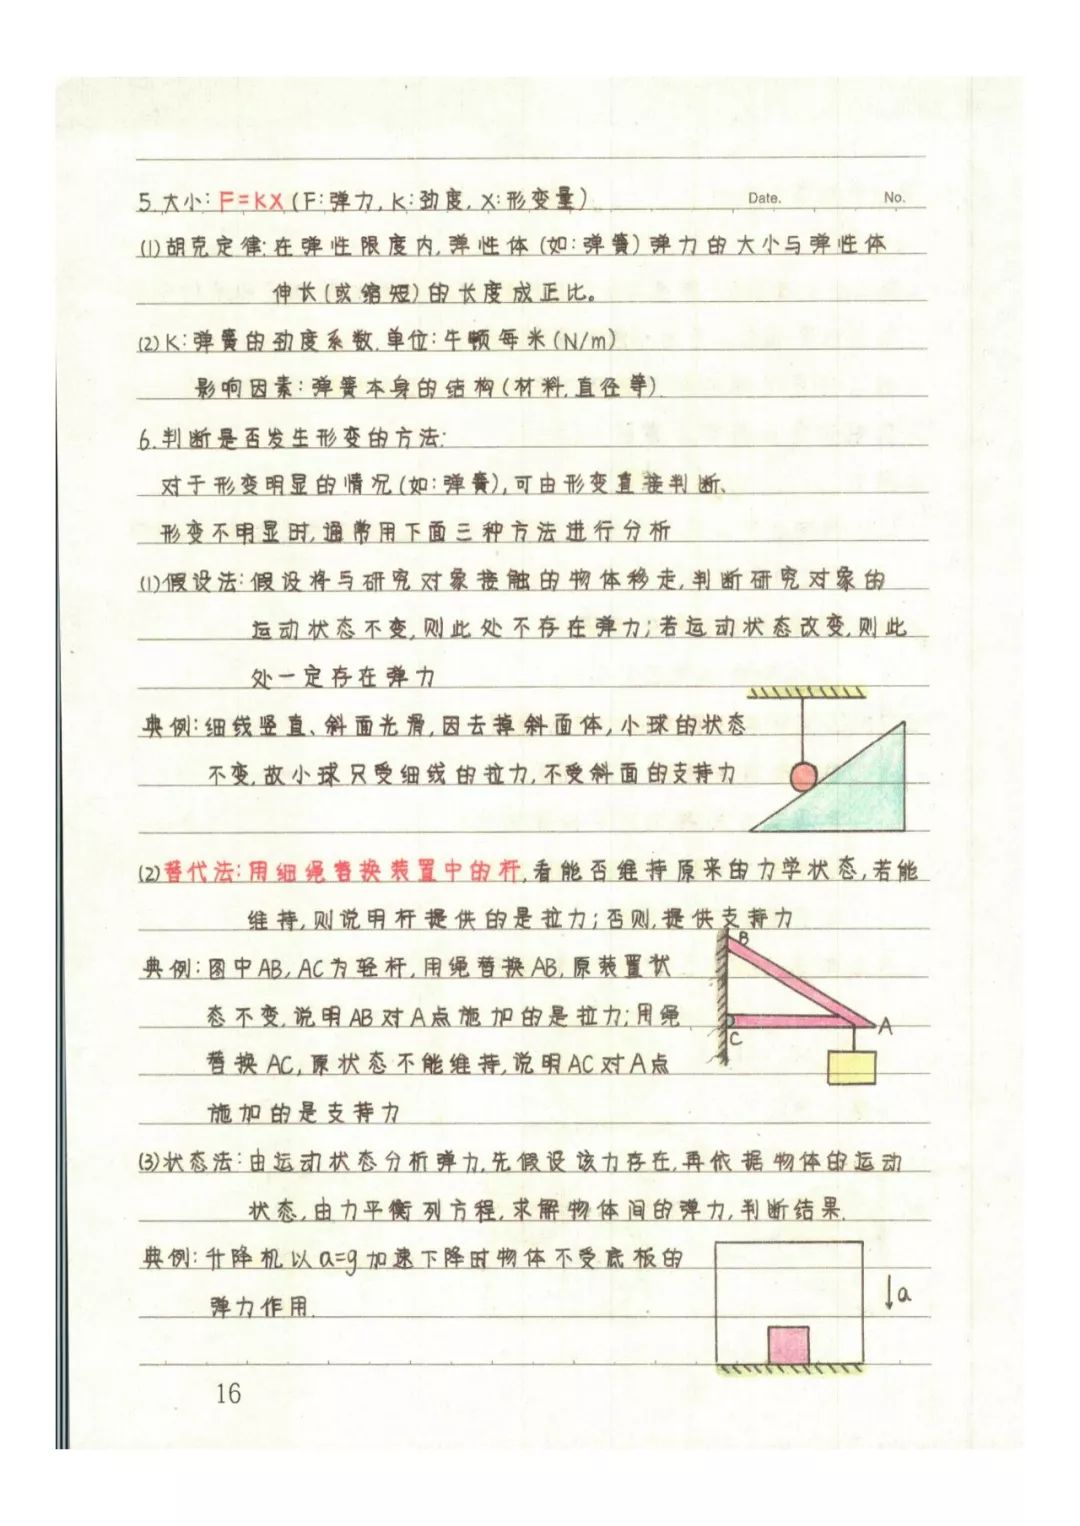 Date. No.
5.大小: F=kx (F:弹力, k:劲度, x:形变量)
(1)胡克定律:在弹性限度内,弹性体(如:弹簧)弹力的大小与弹性体
伸长(或缩短)的长度成正比。
(2)K:弹簧的劲度系数.单位:牛顿每米(N/m)
影响因素:弹簧本身的结构(材料.直径等).
6.判断是否发生形变的方法:
对于形变明显的情况(如:弹簧),可由形变直接判断、
形变不明显时,通常用下面三种方法进行分析
(1)假设法:假设将与研究对象接触的物体移走,判断研究对象的
运动状态不变,则此处不存在弹力;若运动状态改变,则此
处一定存在弹力
典例:细线竖直、斜面光滑,因去掉斜面体,小球的状态
不变,故小球只受细线的拉力,不受斜面的支持力
(2)替代法:用细绳替换装置中的杆,看能否维持原来的力学状态,若能
维持,则说明杆提供的是拉力;否则,提供支持力
B
典例:图中AB,AC为轻杆,用绳替换AB,原装置状
态不变,说明AB对A点施加的是拉力;用绳
A
C
替换AC,原状态不能维持,说明AC对A点
施加的是支持力
(3)状态法:由运动状态分析弹力,先假设该力存在,再依据物体的运动
状态,由力平衡列方程,求解物体间的弹力,判断结果.
典例:升降机以a=g加速下降时物体不受底板的
a
弹力作用.
16